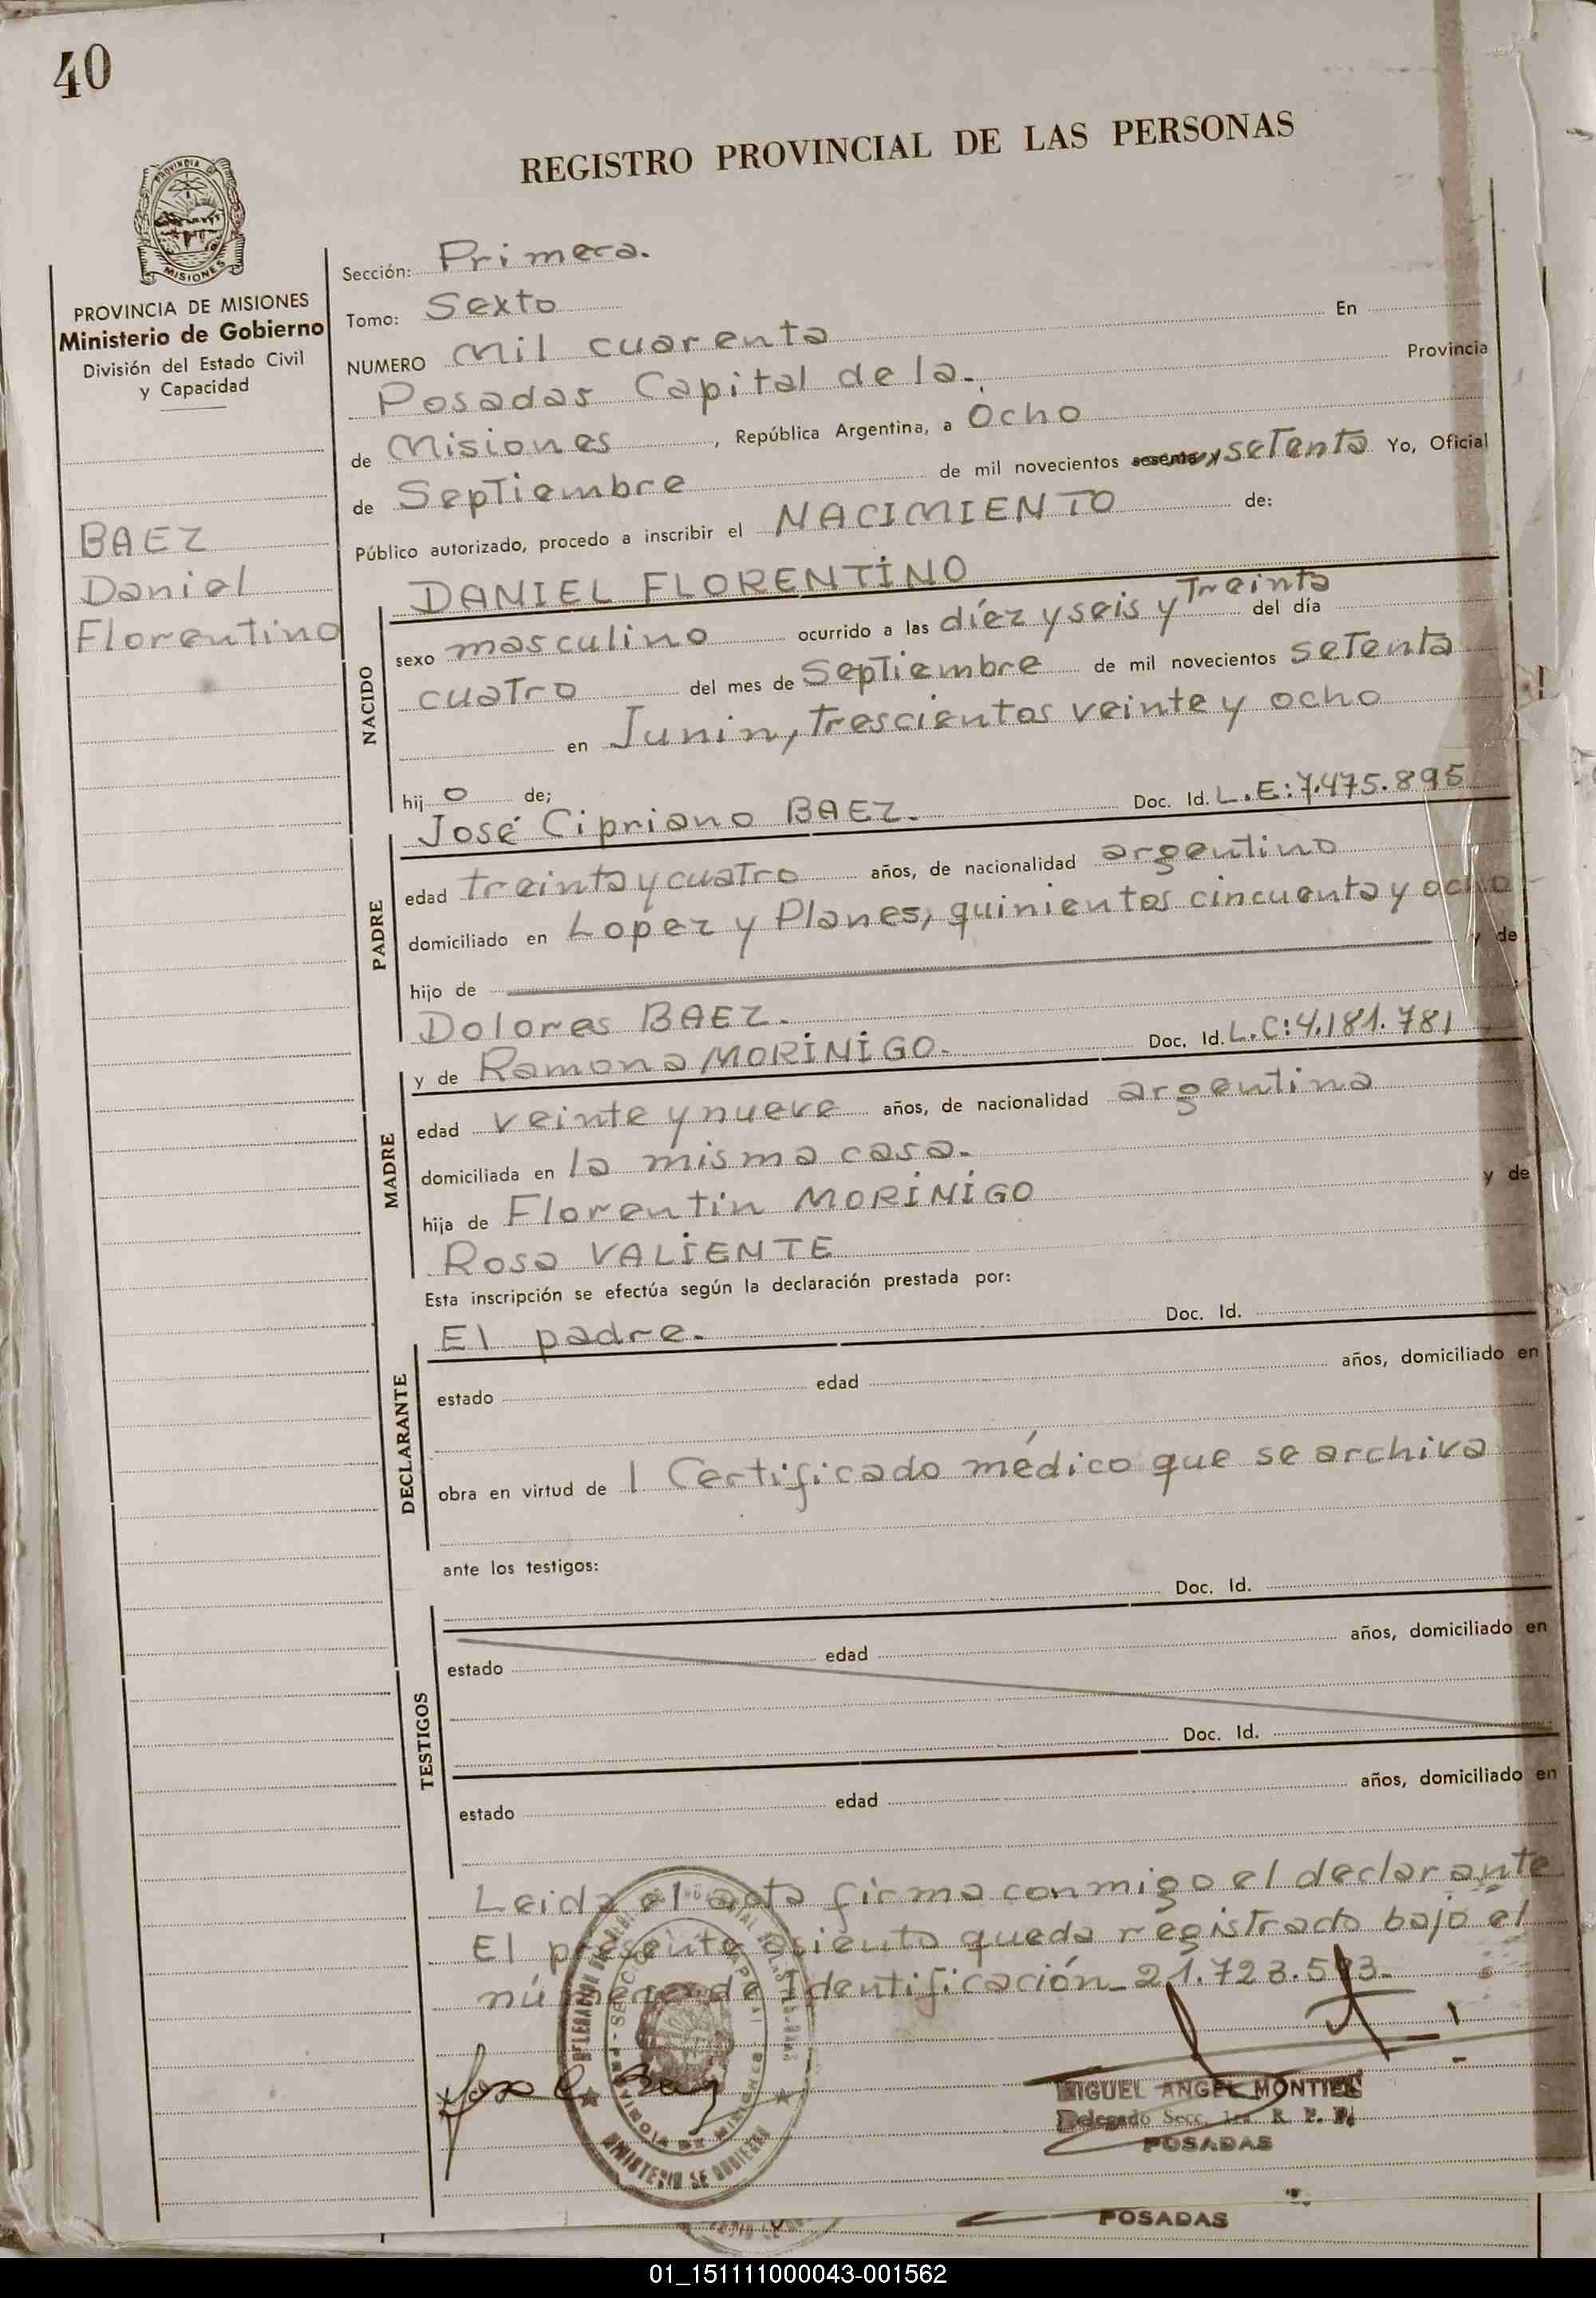 40
REGISTRO PROVINCIAL DE LAS PERSONAS
PROVINCIA
MISIONES
PROVINCIA DE MISIONES
Ministerio de Gobierno
División del Estado Civil
y Capacidad
BAEZ
Daniel
Florentino
Sección: Primera.
Tomo: Sexto
NUMERO Mil cuarenta En
Posadas Capital de la. Provincia
de Misiones, República Argentina, a Ocho
de Septiembre de mil novecientos setenta Yo, Oficial
Público autorizado, procedo a inscribir el NACIMIENTO de:
NACIDO
DANIEL FLORENTINO
sexo masculino ocurrido a las díez y seis y Treinta del día
cuatro del mes de Septiembre de mil novecientos setenta
en Junin, trescientos veinte y ocho
hij o de;
PADRE
José Cipriano BAEZ. Doc. Id. L.E:7.475.895
edad treinta y cuatro años, de nacionalidad argentino
domiciliado en Lopez y Planes, quinientos cincuenta y ocho
hijo de y de
Dolores BAEZ.
MADRE
y de Ramona MORINIGO. Doc. Id. L.C:4.181.781
edad veinte y nueve años, de nacionalidad argentina
domiciliada en la misma casa.
hija de Florentin MORINIGO y de
Rosa VALIENTE
Esta inscripción se efectúa según la declaración prestada por:
DECLARANTE
El padre. Doc. Id.
estado edad años, domiciliado en
obra en virtud de 1 Certificado médico que se archiva
ante los testigos:
TESTIGOS
Doc. Id.
estado edad años, domiciliado en
Doc. Id.
estado edad años, domiciliado en
Leida el acta firma conmigo el declarante
El presente asiento queda registrado bajo el
número de Identificación_21.723.593.
Jose C Baez
MINISTERIO DE GOBIERNO
PROVINCIA DE MISIONES
MIGUEL ANGEL MONTIEL
Delegado Secc. 1ra R. P. P.
POSADAS
POSADAS
01_151111000043-001562